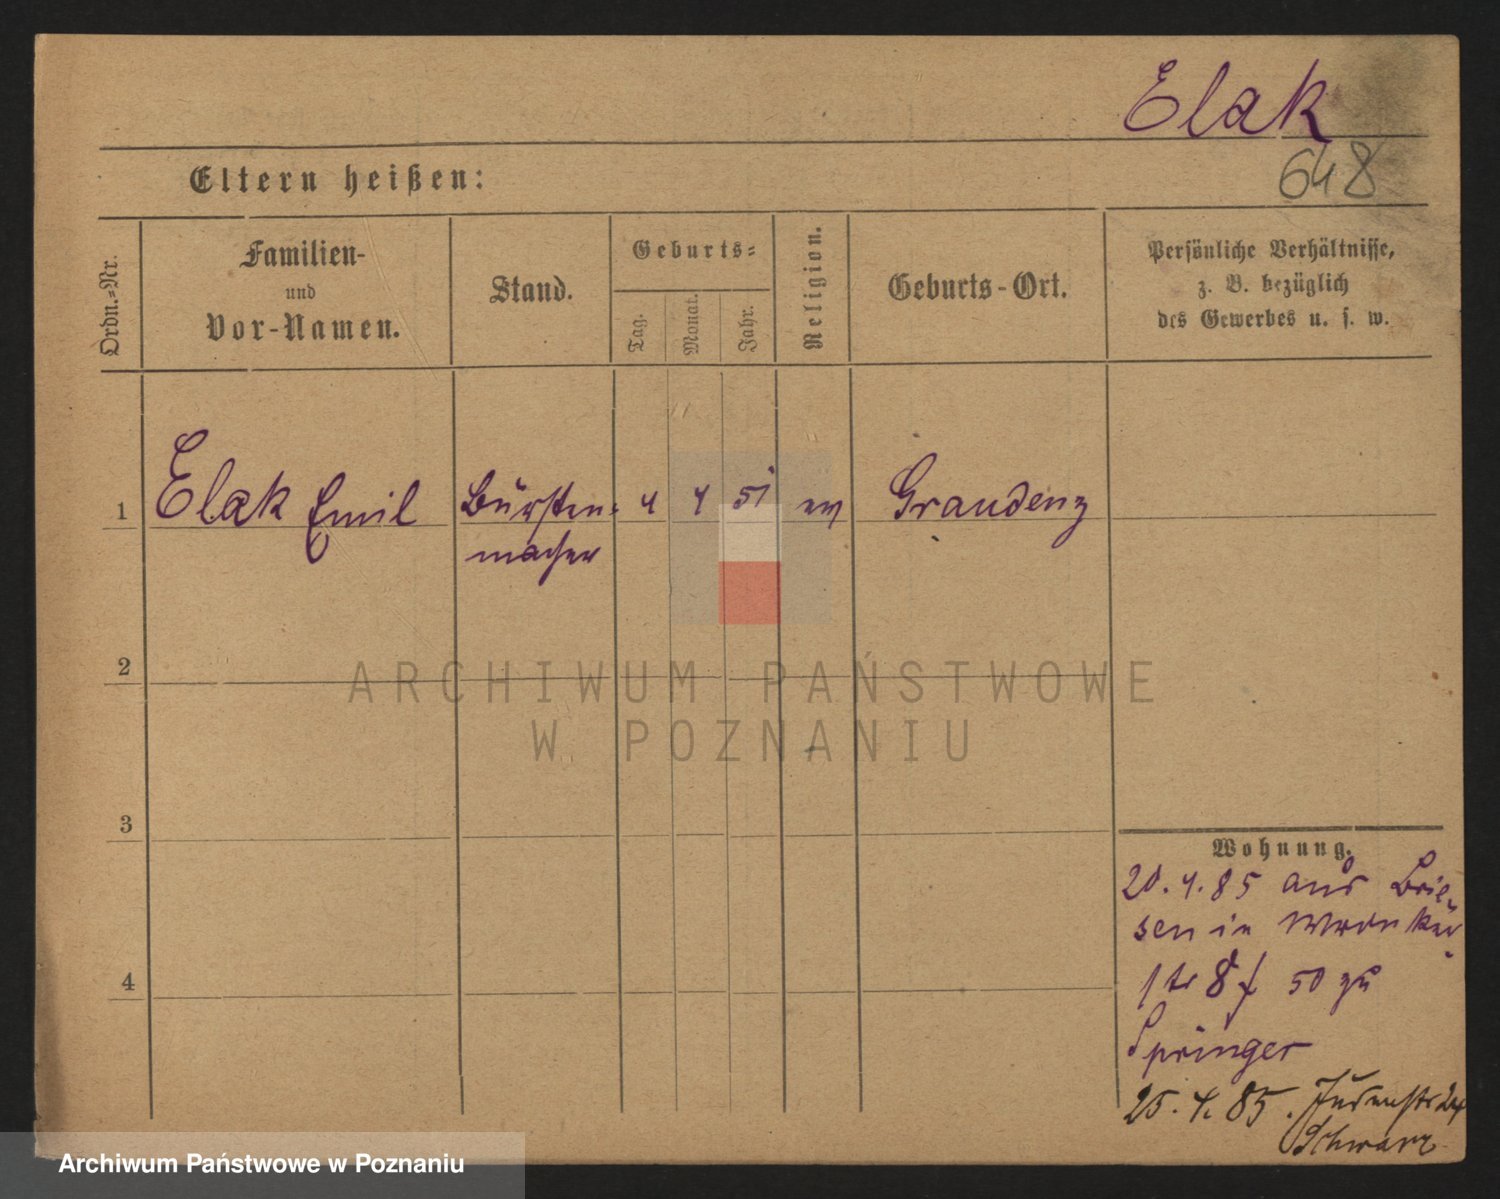 Elak
648
Eltern heißen:
Ordn.-Nr.
Familien-
und
Vor-Namen.
Stand.
Geburts-
Tag.
Monat.
Jahr.
Religion.
Geburts-Ort.
Persönliche Verhältnisse,
z. B. bezüglich
des Gewerbes u. s. w.
1
Elak Emil
Bürsten-
macher
4
4
51
ev
Graudenz
2
3
4
ARCHIWUM PAŃSTWOWE
W POZNANIU
Wohnung.
20.4.85 aus Brie-
sen in
str 8 50 zu
Springer
25.4.85. Judenstr
Schwarz
Archiwum Państwowe w Poznaniu